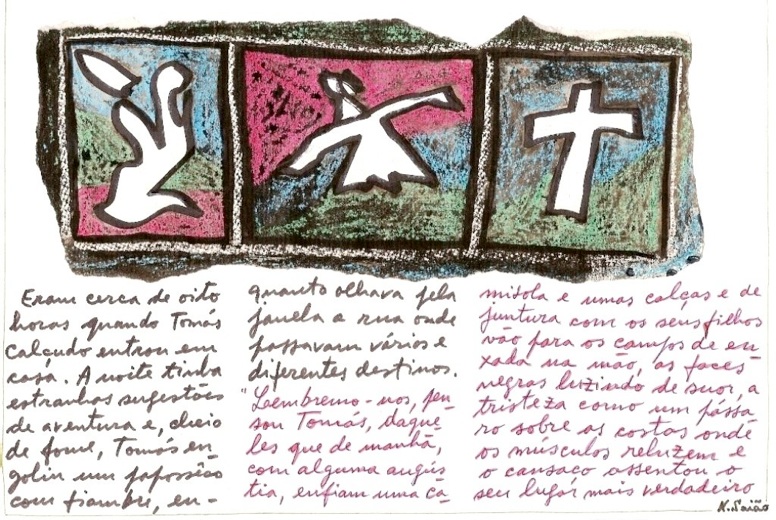 Eram cerca de oito
horas quando Tomás
Calçudo entrou em
casa. A noite tinha
estranhas sugestões
de aventura e, cheio
de fome, Tomás en-
goliu um papossêco
com fiambre, en-
quanto olhava pela
janela a rua onde
passavam vários e
diferentes destinos.
"Lembremo-nos, pen-
sou Tomás, daque
les que de manhã,
com alguma angús
tia, enfiam uma ca-
misola e umas calças e de
juntura com os seus filhos
vão para os campos de en
xada na mão, as faces
negras luzindo de suor, a
tristeza como um pássa
ro sobre as costas onde
os músculos reluzem e
o cansaco assentou o
seu lugar mais verdadeiro
N. Saião